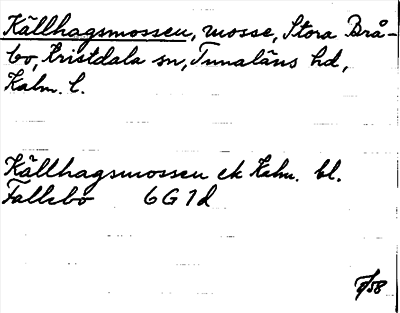 Källhagsmossen, mosse, Stora Brå-
bo, Kristdala sn, Tunaläns hd,
Kalm. l.
Källhagsmossen ek Kalm. bl.
Fallebo 6G1d
/58